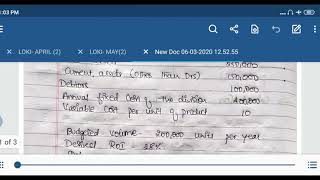 :03 PM
LOKI- APRIL (2)
LOKI- MAY(2)
New Doc 06-03-2020 12.52.55
Current assets (Other than Drs) 150,000
Debtors 100,000
Annual fixed Cost of the division 400,000
Variable Cost per unit of product 10
Budgeted volume- 200,000 units per year
Desired ROI - 28%
1 of 3